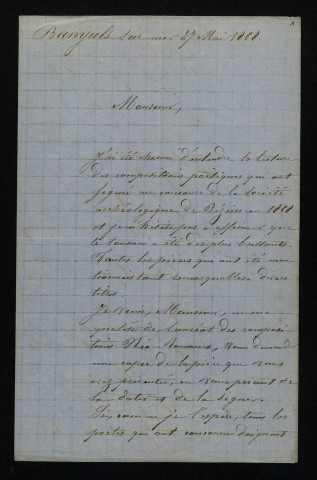 Banyuls sur mer 27 Mai 1868.
Monsieur,
J'ai été charmé d'entendre la lecture
des compositions poétiques qui ont
figuré au concours de la Société
archéologique de Béziers en 1868
et je n'hésite pas à affirmer que
la moisson a été des plus brillantes.
Toutes les pièces qui ont été men
tionnées sont remarquables à divers
titres.
Je viens, Monsieur, en ma
qualité de Lauréat des composi
tions Néo-Romanes, vous demander
une copie de la pièce que vous
avez présentée, en vous priant de
la dater et de la signer.
Si, comme je l'espère, tous les
poètes qui ont concouru daignent